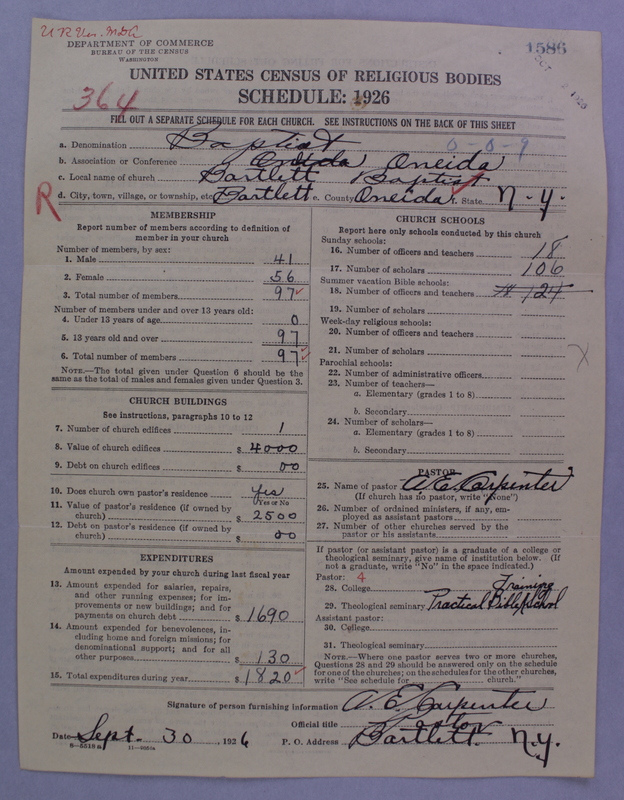 U R Un. M&A
DEPARTMENT OF COMMERCE
BUREAU OF THE CENSUS
WASHINGTON
1586
OCT 2 1926
UNITED STATES CENSUS OF RELIGIOUS BODIES
364
SCHEDULE: 1926
FILL OUT A SEPARATE SCHEDULE FOR EACH CHURCH. SEE INSTRUCTIONS ON THE BACK OF THIS SHEET
a. Denomination Baptist 0-0-9
b. Association or Conference Oneida Oneida
c. Local name of church Bartlett Baptist
R
d. City, town, village, or township, etc. Bartlett e. County Oneida f. State N.Y.
MEMBERSHIP
Report number of members according to definition of
member in your church
Number of members, by sex:
1. Male 41
2. Female 56
3. Total number of members 97
Number of members under and over 13 years old:
4. Under 13 years of age 0
5. 13 years old and over 97
6. Total number of members 97
NOTE.—The total given under Question 6 should be
same as the total of males and females given under Question 3.
CHURCH BUILDINGS
See instructions, paragraphs 10 to 12
7. Number of church edifices 1
8. Value of church edifices $ 4000
9. Debt on church edifices $ 00
10. Does church own pastor's residence yes
Yes or No
11. Value of pastor's residence (if owned by
church) $ 2500
12. Debt on pastor's residence (if owned by
church) $ 00
EXPENDITURES
Amount expended by your church during last fiscal year
13. Amount expended for salaries, repairs,
and other running expenses; for im-
provements or new buildings; and for
payments on church debt $ 1690
14. Amount expended for benevolences, in-
cluding home and foreign missions; for
denominational support; and for all
other purposes $ 130
15. Total expenditures during year $ 1820
CHURCH SCHOOLS
Report here only schools conducted by this church
Sunday schools:
16. Number of officers and teachers 18
17. Number of scholars 106
Summer vacation Bible schools:
18. Number of officers and teachers 124
19. Number of scholars
Week-day religious schools:
20. Number of officers and teachers
21. Number of scholars
X
Parochial schools:
22. Number of administrative officers
23. Number of teachers—
a. Elementary (grades 1 to 8)
b. Secondary
24. Number of scholars—
a. Elementary (grades 1 to 8)
b. Secondary
PASTOR
25. Name of pastor A. E. Carpenter
(If church has no pastor, write "None")
26. Number of ordained ministers, if any, em-
ployed as assistant pastors
27. Number of other churches served by the
pastor or his assistants
If pastor (or assistant pastor) is a graduate of a college or
theological seminary, give name of institution below. (If
not a graduate, write "No" in the space indicated.)
Pastor: 4
28. College Training
29. Theological seminary Practical Bible School
Assistant pastor:
30. College
31. Theological seminary
NOTE.—Where one pastor serves two or more churches,
Questions 28 and 29 should be answered only on the schedule
for one of the churches; on the schedules for the other churches,
write "See schedule for church."
Signature of person furnishing information A. E. Carpenter
Official title Pastor
Date Sept. 30, 1926 P. O. Address Bartlett N.Y.
8—5519a